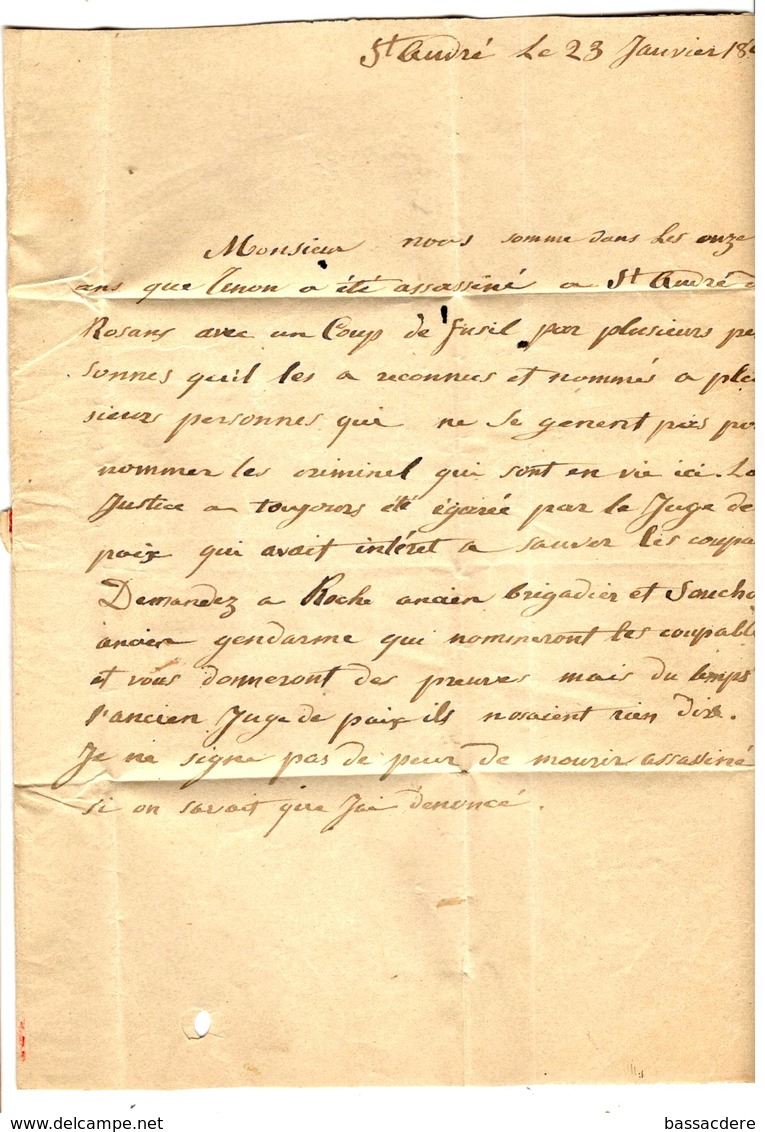 St André Le 23 Janvier 18
Monsieur nous somme dans les onze
ans que Tenon a été assassiné a St André d
Rosans avec un Coup de fusil par plusieurs per
sonnes qu'il les a reconnus et nommés a plu
sieurs personnes qui ne se genent pas pou
nommer les criminel qui sont en vie ici. La
Justice a toujours été égarée par le Juge de
paix qui avait intéret a sauver les coupa
Demandez a Roche ancien brigadier et Soucho
ancien gendarme qui nommeront les coupable
et vous donneront des preuves mais du temps
l'ancien Juge de paix ils nosaient rien dire.
Je ne signe pas de peur de mourir assassiné
si on savait que J'ai denoncé.
bassacdere